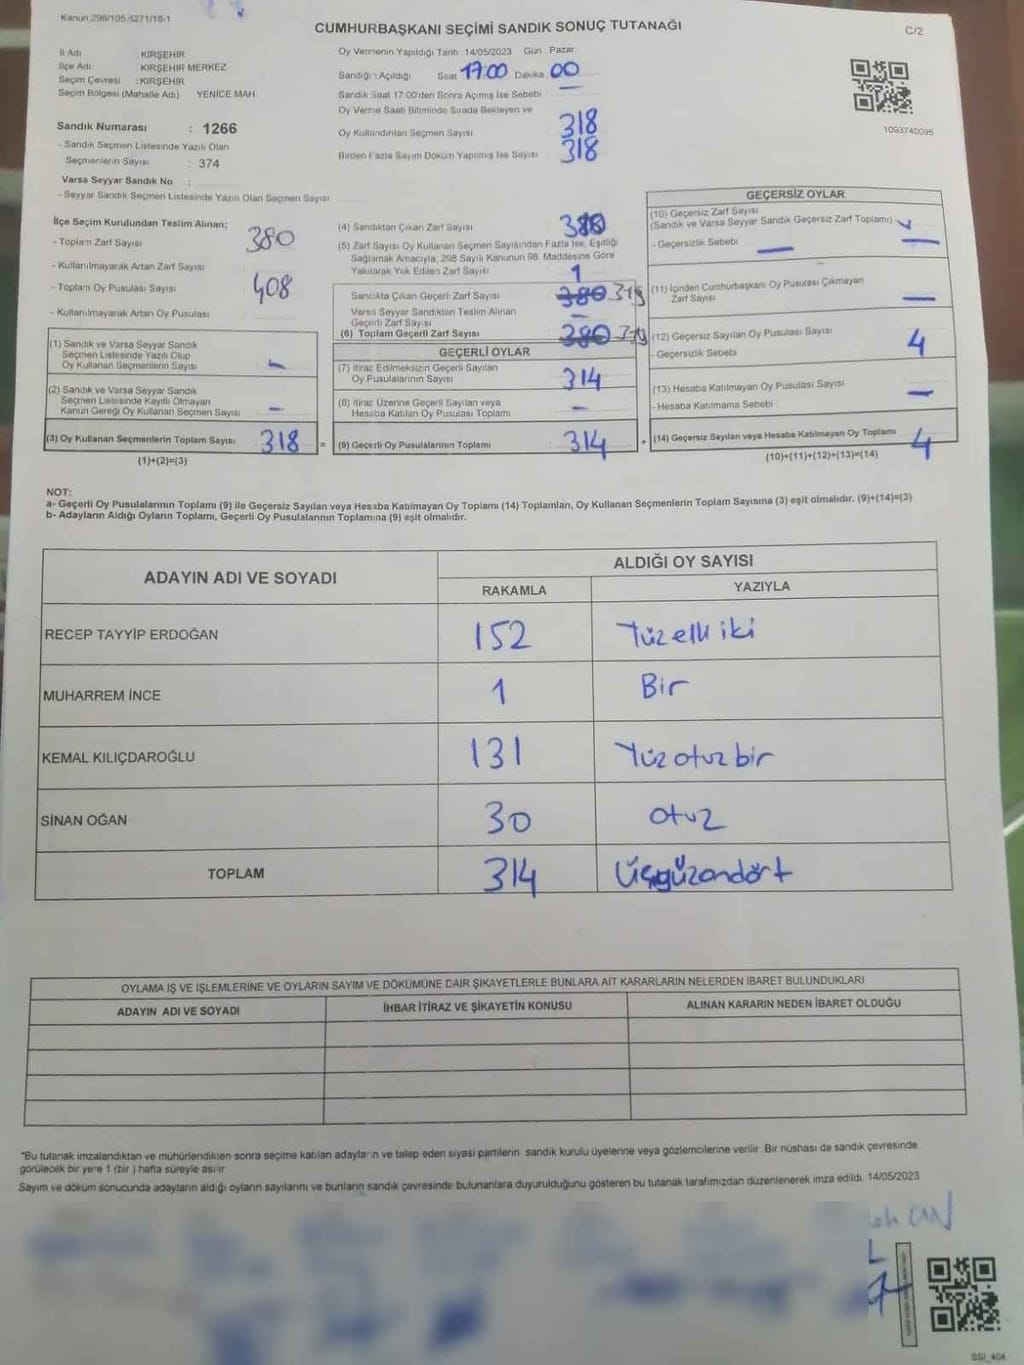 Kanun 298/105,6271/18-1
CUMHURBAŞKANI SEÇİMİ SANDIK SONUÇ TUTANAĞI
C/2
İl Adı : KIRŞEHİR
İlçe Adı : KIRŞEHİR MERKEZ
Seçim Çevresi : KIRŞEHİR
Seçim Bölgesi (Mahalle Adı) YENİCE MAH.
Sandık Numarası : 1266
- Sandık Seçmen Listesinde Yazılı Olan
Seçmenlerin Sayısı : 374
Varsa Seyyar Sandık No :
- Seyyar Sandık Seçmen Listesinde Yazılı Olan Seçmen Sayısı
Oy Vermenin Yapıldığı Tarih 14/05/2023 Gün : Pazar
Sandığın Açıldığı Saat 17:00 Dakika 00
Sandık Saat 17:00'den Sonra Açılmış İse Sebebi : —
Oy Verme Saati Bitiminde Sırada Bekleyen ve
Oy Kullandırılan Seçmen Sayısı 318
Birden Fazla Sayım Döküm Yapılmış İse Sayısı 318
1093740095
İlçe Seçim Kurulundan Teslim Alınan;
- Toplam Zarf Sayısı 380
- Kullanılmayarak Artan Zarf Sayısı
- Toplam Oy Pusulası Sayısı 408
- Kullanılmayarak Artan Oy Pusulası
(1) Sandık ve Varsa Seyyar Sandık
Seçmen Listesinde Yazılı Olup
Oy Kullanan Seçmenlerin Sayısı
(2) Sandık ve Varsa Seyyar Sandık
Seçmen Listesinde Kayıtlı Olmayan
Kanun Gereği Oy Kullanan Seçmen Sayısı —
(3) Oy Kullanan Seçmenlerin Toplam Sayısı 318
(1)+(2)=(3)
(4) Sandıktan Çıkan Zarf Sayısı
(5) Zarf Sayısı Oy Kullanan Seçmen Sayısından Fazla İse, Eşitliği
Sağlamak Amacıyla, 298 Sayılı Kanunun 98. Maddesine Göre
Yakılarak Yok Edilen Zarf Sayısı 1
Sandıkta Çıkan Geçerli Zarf Sayısı 380
Varsa Seyyar Sandıktan Teslim Alınan
Geçerli Zarf Sayısı —
(6) Toplam Geçerli Zarf Sayısı 380
GEÇERLİ OYLAR
(7) İtiraz Edilmeksizin Geçerli Sayılan
Oy Pusulalarının Sayısı 314
(8) İtiraz Üzerine Geçerli Sayılan veya
Hesaba Katılan Oy Pusulası Toplamı —
= (9) Geçerli Oy Pusulalarının Toplamı 314 +
GEÇERSİZ OYLAR
(10) Geçersiz Zarf Sayısı
(Sandık ve Varsa Seyyar Sandık Geçersiz Zarf Toplamı)
- Geçersizlik Sebebi — —
(11) İçinden Cumhurbaşkanı Oy Pusulası Çıkmayan
Zarf Sayısı —
(12) Geçersiz Sayılan Oy Pusulası Sayısı 4
- Geçersizlik Sebebi
(13) Hesaba Katılmayan Oy Pusulası Sayısı —
- Hesaba Katılmama Sebebi :
(14) Geçersiz Sayılan veya Hesaba Katılmayan Oy Toplamı 4
(10)+(11)+(12)+(13)=(14)
NOT:
a- Geçerli Oy Pusulalarının Toplamı (9) ile Geçersiz Sayılan veya Hesaba Katılmayan Oy Toplamı (14) Toplamları, Oy Kullanan Seçmenlerin Toplam Sayısına (3) eşit olmalıdır. (9)+(14)=(3)
b- Adayların Aldığı Oyların Toplamı, Geçerli Oy Pusulalarının Toplamına (9) eşit olmalıdır.
ADAYIN ADI VE SOYADI
ALDIĞI OY SAYISI
RAKAMLA YAZIYLA
RECEP TAYYİP ERDOĞAN 152 Yüzelli iki
MUHARREM İNCE 1 Bir
KEMAL KILIÇDAROĞLU 131 Yüz otuz bir
SİNAN OĞAN 30 otuz
TOPLAM 314 Üçyüzondört
OYLAMA İŞ VE İŞLEMLERİNE VE OYLARIN SAYIM VE DÖKÜMÜNE DAİR ŞİKAYETLERLE BUNLARA AİT KARARLARIN NELERDEN İBARET BULUNDUKLARI
ADAYIN ADI VE SOYADI İHBAR İTİRAZ VE ŞİKAYETİN KONUSU ALINAN KARARIN NEDEN İBARET OLDUĞU
*Bu tutanak imzalandıktan ve mühürlendikten sonra seçime katılan adayların ve talep eden siyasi partilerin sandık kurulu üyelerine veya gözlemcilerine verilir. Bir nüshası da sandık çevresinde
görülecek bir yere 1 (bir) hafta süreyle asılır
Sayım ve döküm sonucunda adayların aldığı oyların sayılarını ve bunların sandık çevresinde bulunanlara duyurulduğunu gösteren bu tutanak tarafımızdan düzenlenerek imza edildi. 14/05/2023